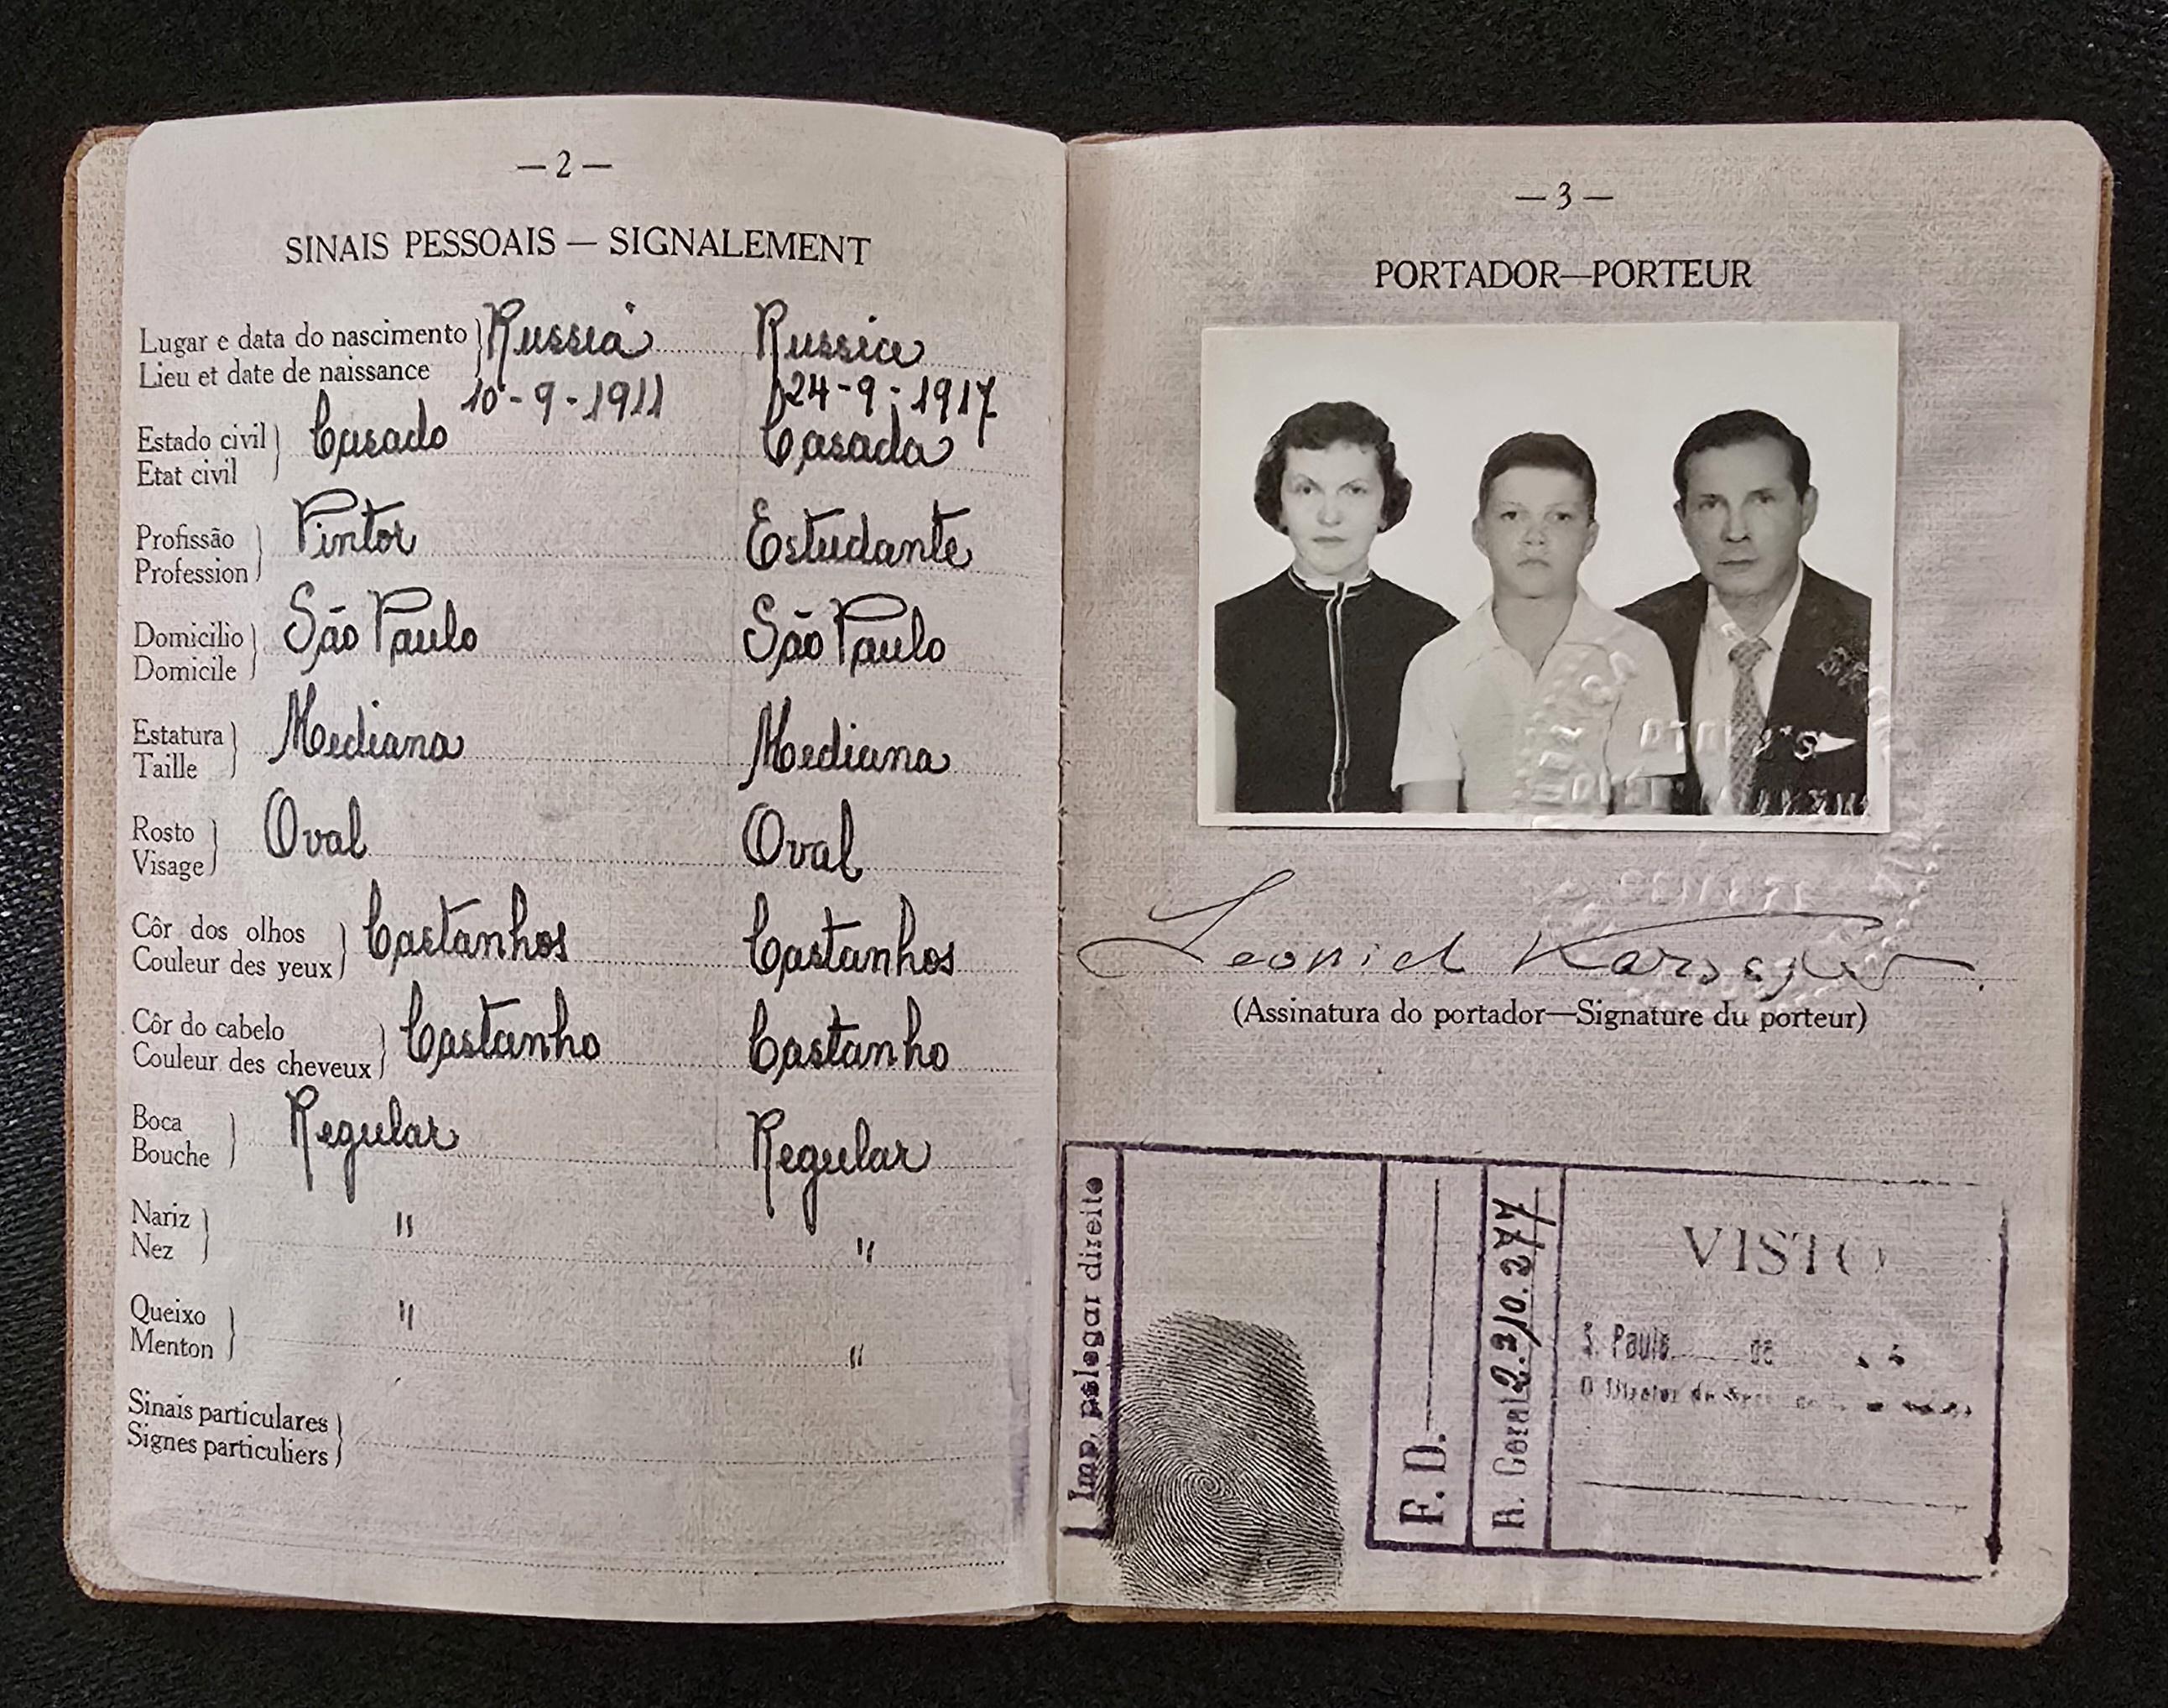 — 2 —
SINAIS PESSOAIS — SIGNALEMENT
Lugar e data do nascimento } Russia Russia
Lieu et date de naissance
10-9-1911 24-9-1917
Estado civil } Casado Casada
Etat civil
Profissão } Pintor Estudante
Profession
Domicilio } São Paulo São Paulo
Domicile
Estatura } Mediana Mediana
Taille
Rosto } Oval Oval
Visage
Côr dos olhos } Castanhos Castanhos
Couleur des yeux
Côr do cabelo } Castanho Castanho
Couleur des cheveux
Boca } Regular Regular
Bouche
Nariz } " "
Nez
Queixo } " "
Menton
Sinais particulares }
Signes particuliers
— 3 —
PORTADOR—PORTEUR
Leonid
(Assinatura do portador—Signature du porteur)
Imp. polegar direito
F. D.
R. Geral 2.210.277
VISTO
S. Paulo de
O Diretor do